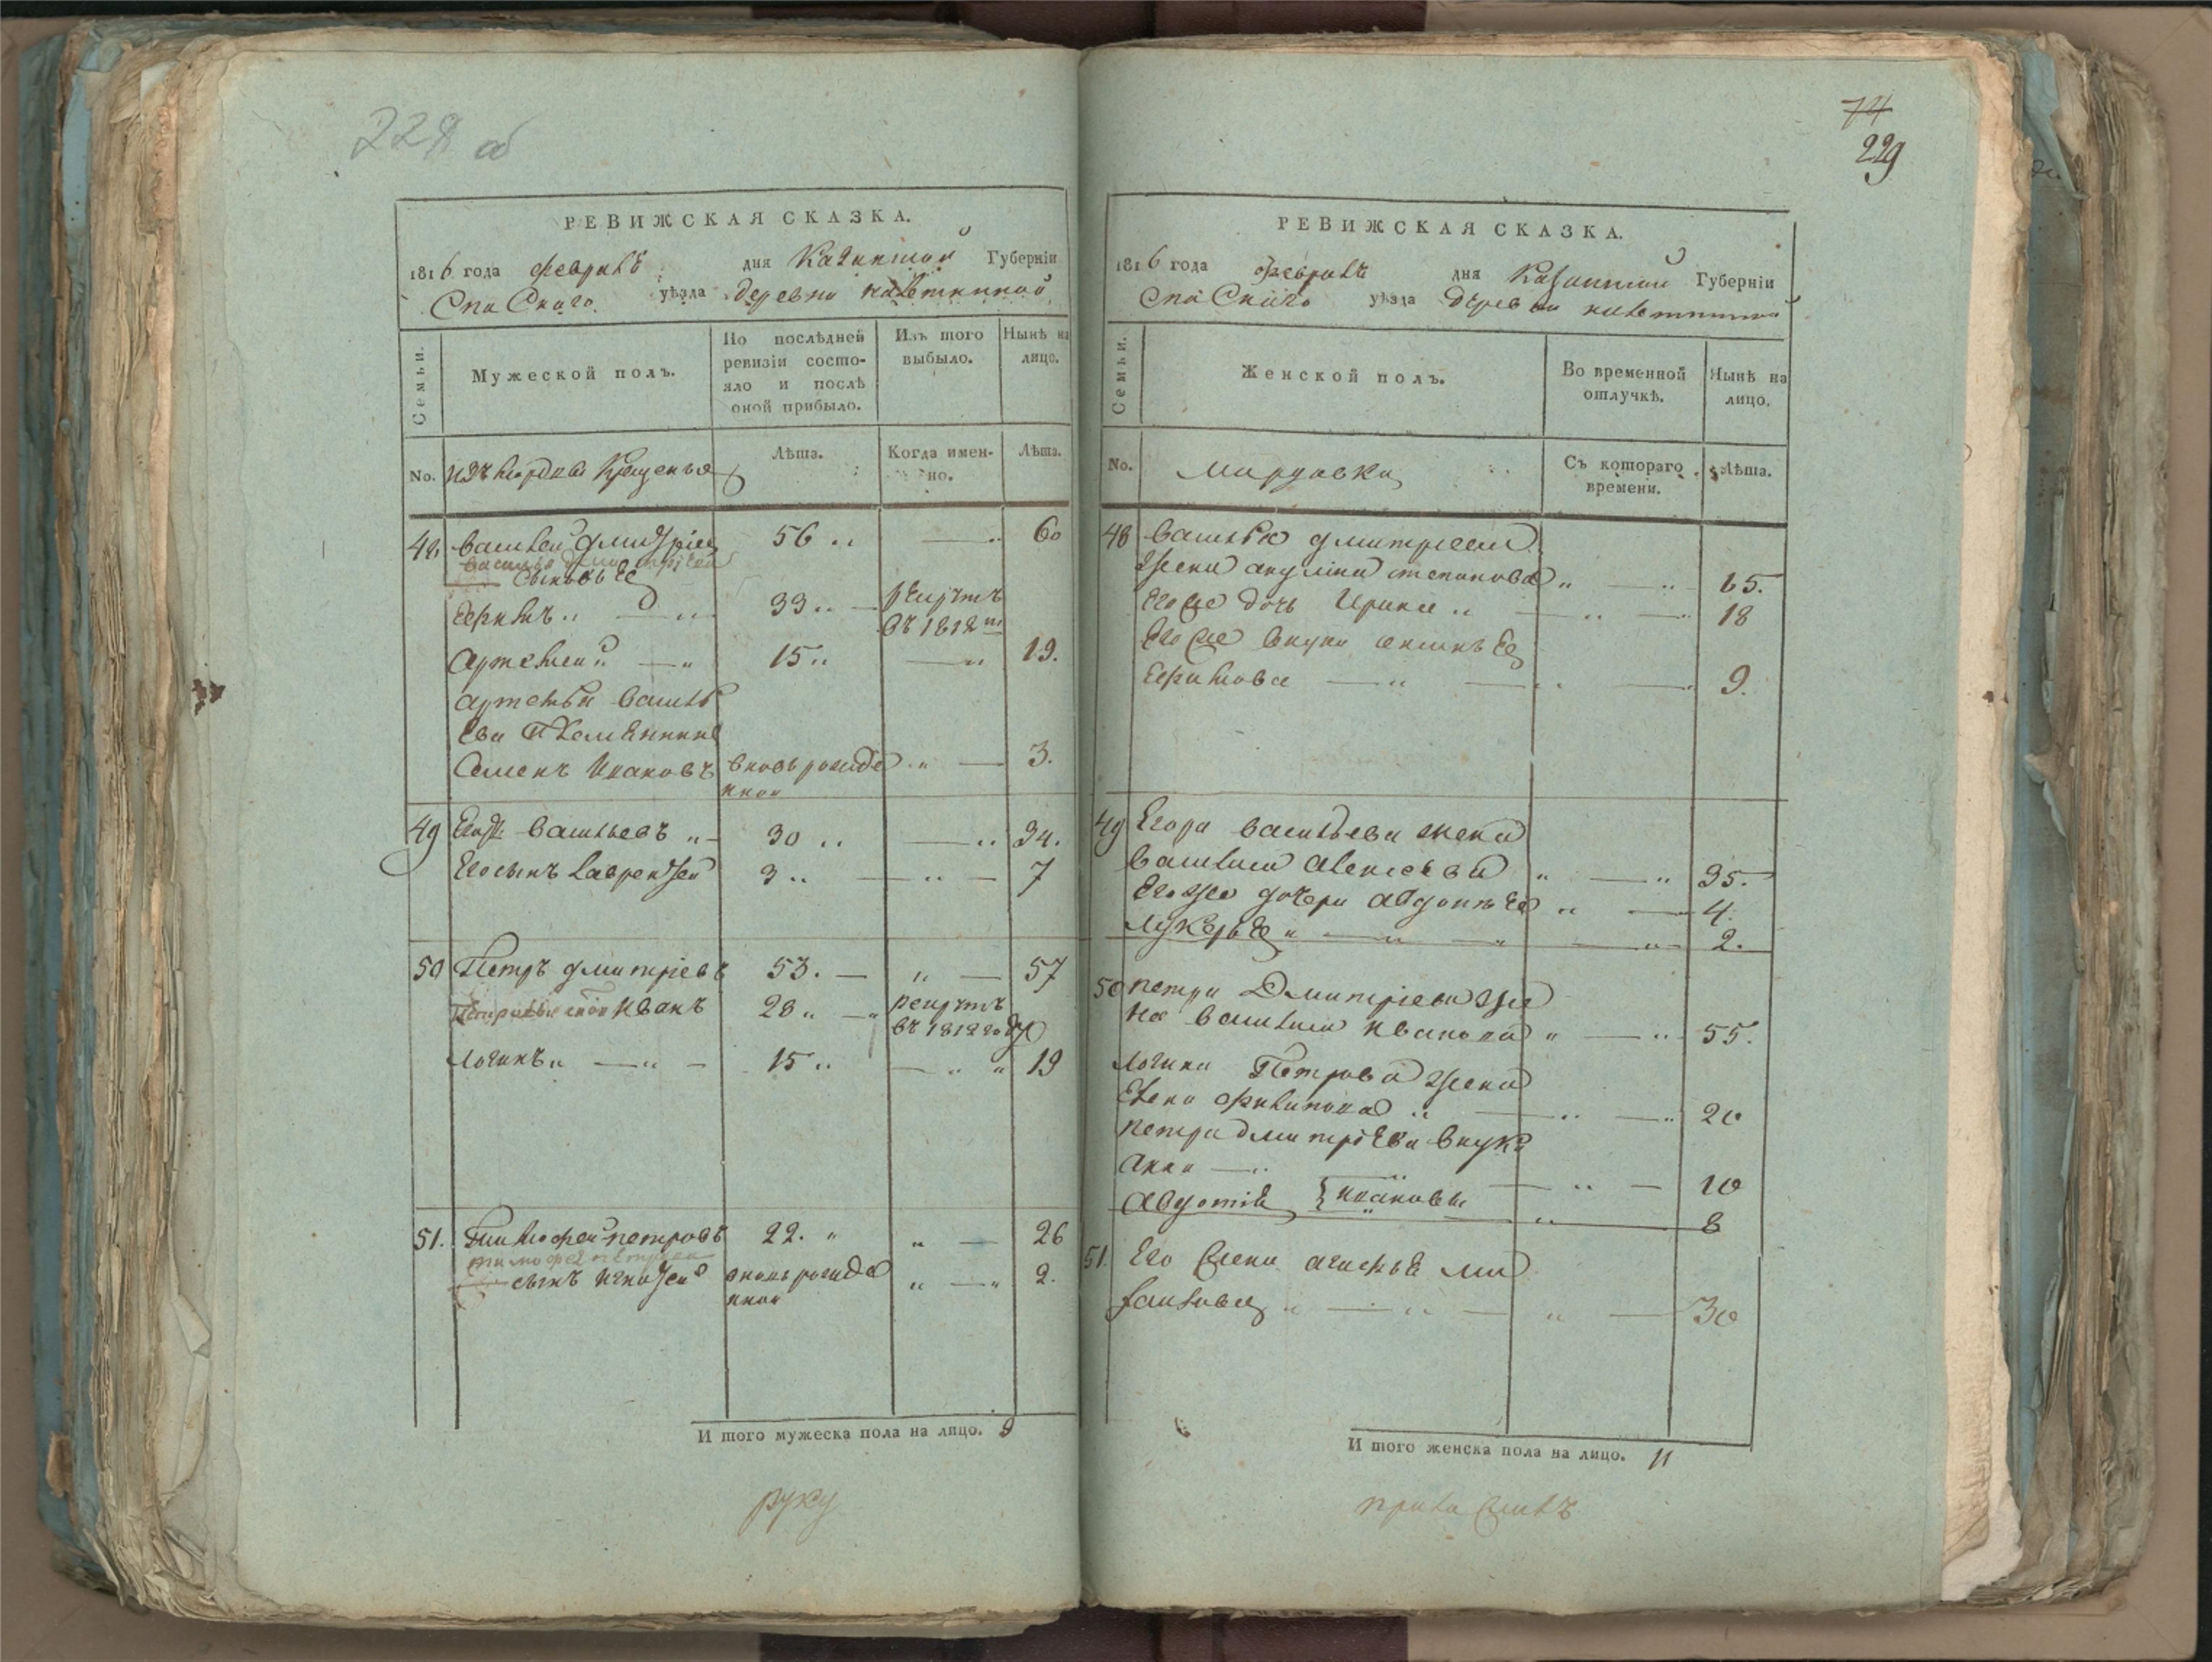 228 об
РЕВИЖСКАЯ СКАЗКА.
1816 года февраля дня Казанской Губерніи
Спаскаго уѣзда деревни
Семьи.
Мужеской полъ.
По послѣдней ревизіи состо-
яло и послѣ
оной прибыло.
Изъ того
выбыло.
Нынѣ на
лицо.
No. изъ мордвы крещеныя
Лѣта.
Когда имен-
но.
Лѣта.
48 Василей Дмитріев 56 60
Василья Дмитріева
сыновья
Ефимъ 33 рекрутъ
въ 1812 м
Артемей 15 19.
Артемья Василь
ева племянник
Семенъ Ивановъ вновь рожде 3.
нной
49 Егоръ Васильевъ 30 34.
Его сынъ Лаврентей 3 7
50 Петръ Дмитріевъ 53. 57
Иванъ 28 рекрутъ
въ 1812 году
Логинъ 15 19
51. Тимофей Петровъ 22. 26
Тимофея Петрова
сынъ Игнатей вновь рожде 2.
нной
И того мужеска пола на лицо. 9
руку
74
229
РЕВИЖСКАЯ СКАЗКА.
1816 года февраля дня Казанской Губерніи
Спаскаго уѣзда деревни
Семьи.
Женской полъ.
Во временной
отлучкѣ.
Нынѣ на
лицо.
No. мордовки
Съ котораго
времени.
Лѣта.
48 Василья Дмитреева
жена Акулина Степанова 65.
Его же дочь Ирина 18
Его же внука
Ефимова 9.
49 Егора Васильева жена
Василиса Алексеева 35.
Его же дочери Авдотья 4.
Лукерья 2.
50 Петра Дмитріева же
на Василиса Иванова 55.
Логина Петрова жена
Елена Филипова 20
Петра Дмитріева внуки
Анна 10
Авдотія } Ивановы 8
51. Его жена Агафья Ми
хайлова 30
И того женска пола на лицо. 11
приложилъ